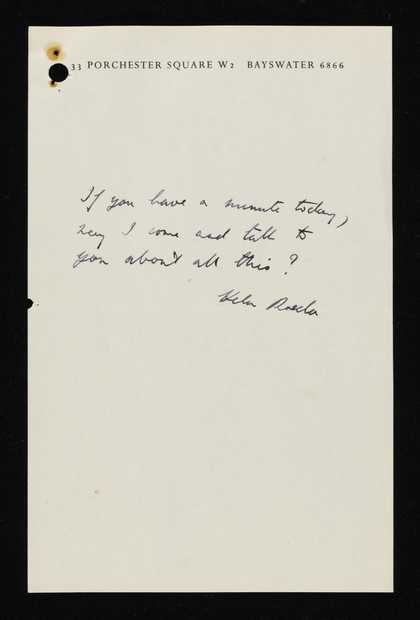 33 PORCHESTER SQUARE W2 BAYSWATER 6866
If you have a minute today,
may I come and talk to
you about all this?